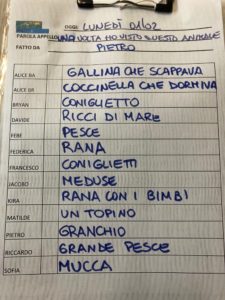 OGGI LUNEDÌ 01/02
PAROLA APPELLO UNA VOLTA HO VISTO QUESTO ANIMALE
FATTO DA PIETRO
ALICE BA GALLINA CHE SCAPPAVA
ALICE GR COCCINELLA CHE DORMIVA
BRYAN CONIGLIETTO
DAVIDE RICCI DI MARE
FEBE PESCE
FEDERICA RANA
FRANCESCO CONIGLIETTI
JACOBO MEDUSE
KIRA RANA CON I BIMBI
MATILDE UN TOPINO
PIETRO GRANCHIO
RICCARDO GRANDE PESCE
SOFIA MUCCA